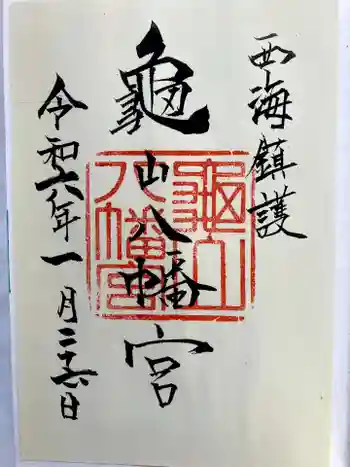 西海鎮護
龜山八幡宮
令和六年一月二十六日
龜山八幡宮